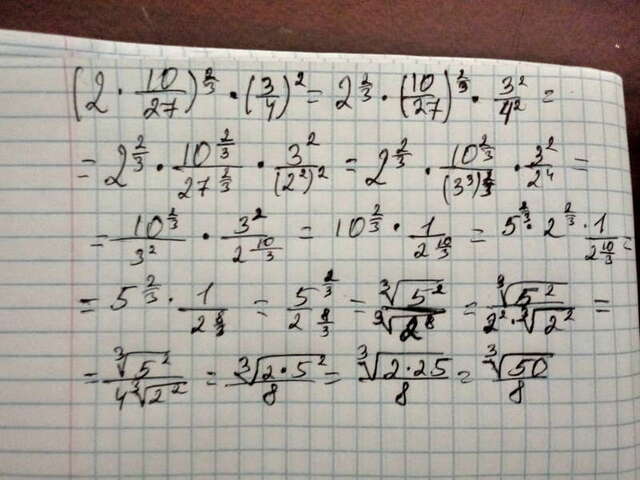 (2 · 10/27)^(2/3) · (3/4)^2 = 2^(2/3) · (10/27)^(2/3) · 3^2/4^2 =
= 2^(2/3) · 10^(2/3)/27^(2/3) · 3^2/(2^2)^2 = 2^(2/3) · 10^(2/3)/(3^3)^(2/3) · 3^2/2^4 =
= 10^(2/3)/3^2 · 3^2/2^(10/3) = 10^(2/3) · 1/2^(10/3) = 5^(2/3) · 2^(2/3) · 1/2^(10/3) =
= 5^(2/3) · 1/2^(8/3) = 5^(2/3)/2^(8/3) = ∛5^2/∛2^8 = ∛5^2/2^2·∛2^2 =
= ∛5^2/4∛2^2 = ∛2·5^2/8 = ∛2·25/8 = ∛50/8